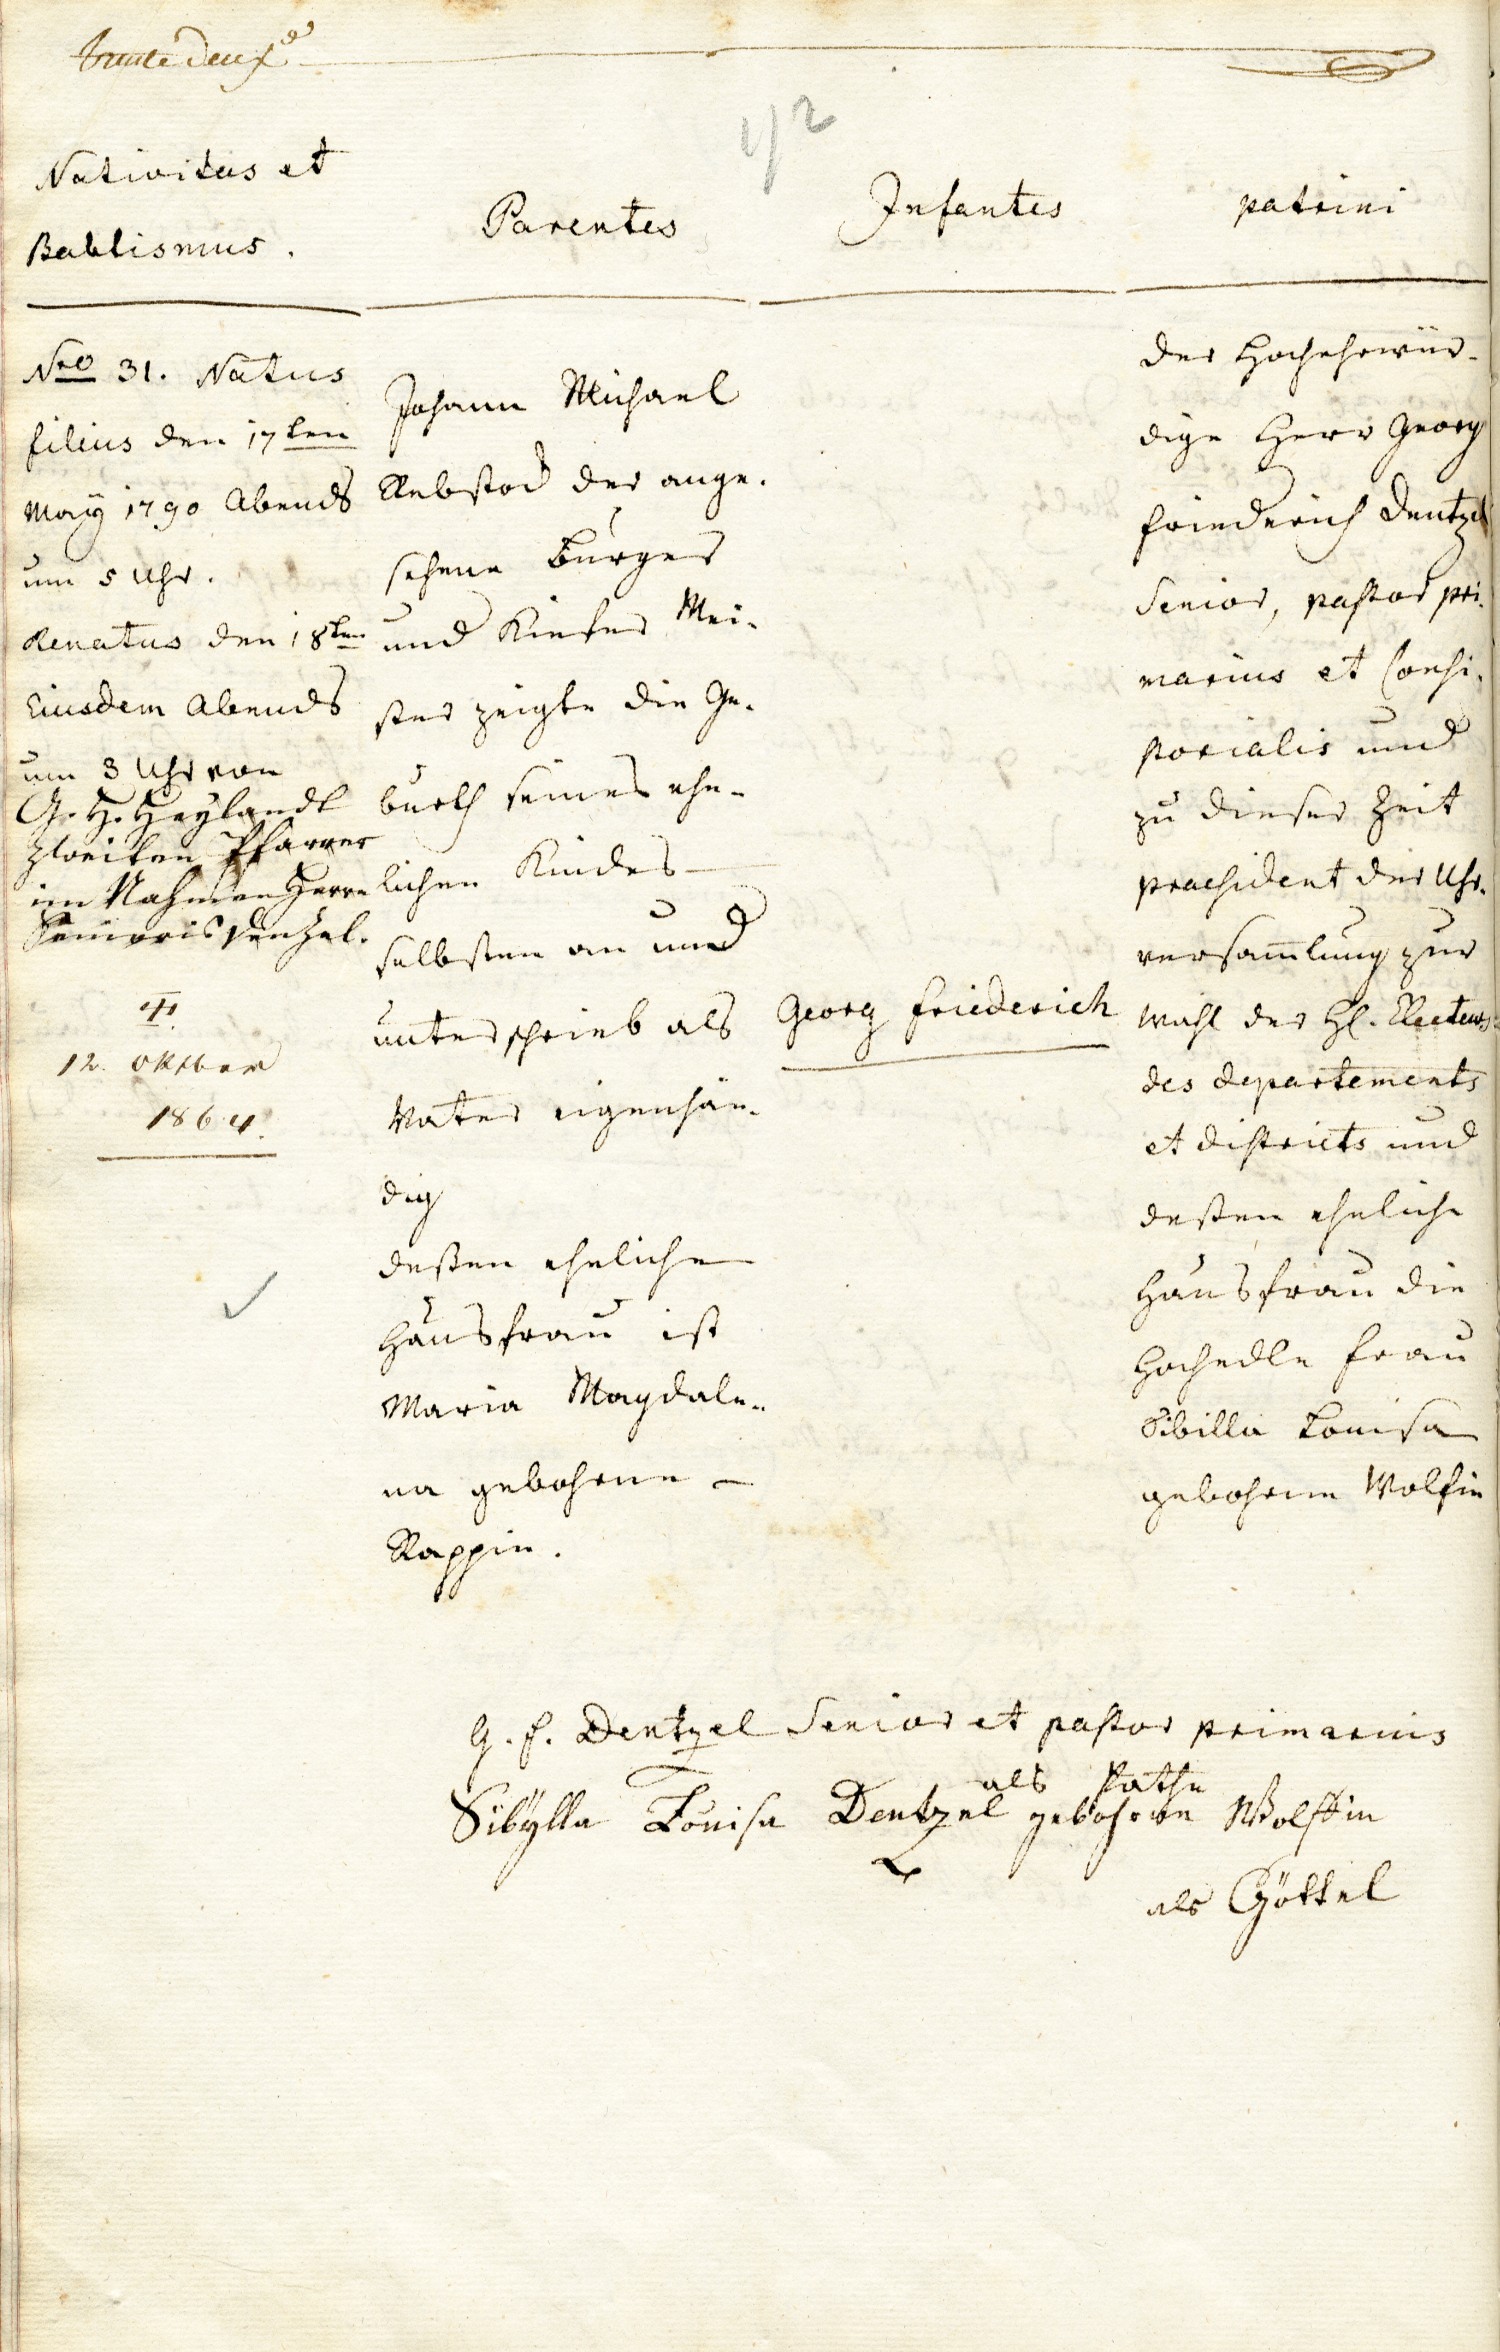 trente deux
42
Nativitas et
Babtismus.
Parentes
Infantes
patrini
Nro 31. Natus
filius den 17ten
May 1790 Abends
um 5 Uhr.
Renatus den 18ten
Eiusdem Abends
um 3 Uhr von
G. H. Heylandt
zweiten Pfarrer
im Nahmen Herrn
Senioris Denzel.
12. Oktber
1864.
Johann Michael
Rebstock der ange-
sehene Burger
und Kiefer Mei-
ster zeigte die Ge-
burth seines ehe-
lichen Kindes
selbsten an und
unterschrieb als
Vater eigenhän-
dig
deßen eheliche
Hausfrau ist
Maria Magdale-
na gebohrne
Rappin.
Georg Friederich
der Hochehrwür-
dige Herr Georg
Friederich Dentzel
Senior, pastor pri-
marius et Consi-
storialis und
zu dieser Zeit
praesident der Uhr-
versam̄lung zur
Wahl der
des departements
et districts und
deßen eheliche
Hausfrau die
Hochedle Frau
Sibilla Louisa
gebohrne Wolfin
G. F. Dentzel Senior et pastor primarius
als Pathe
Sibÿlla Louisa Dentzel gebohrne Wolffin
als Göttel